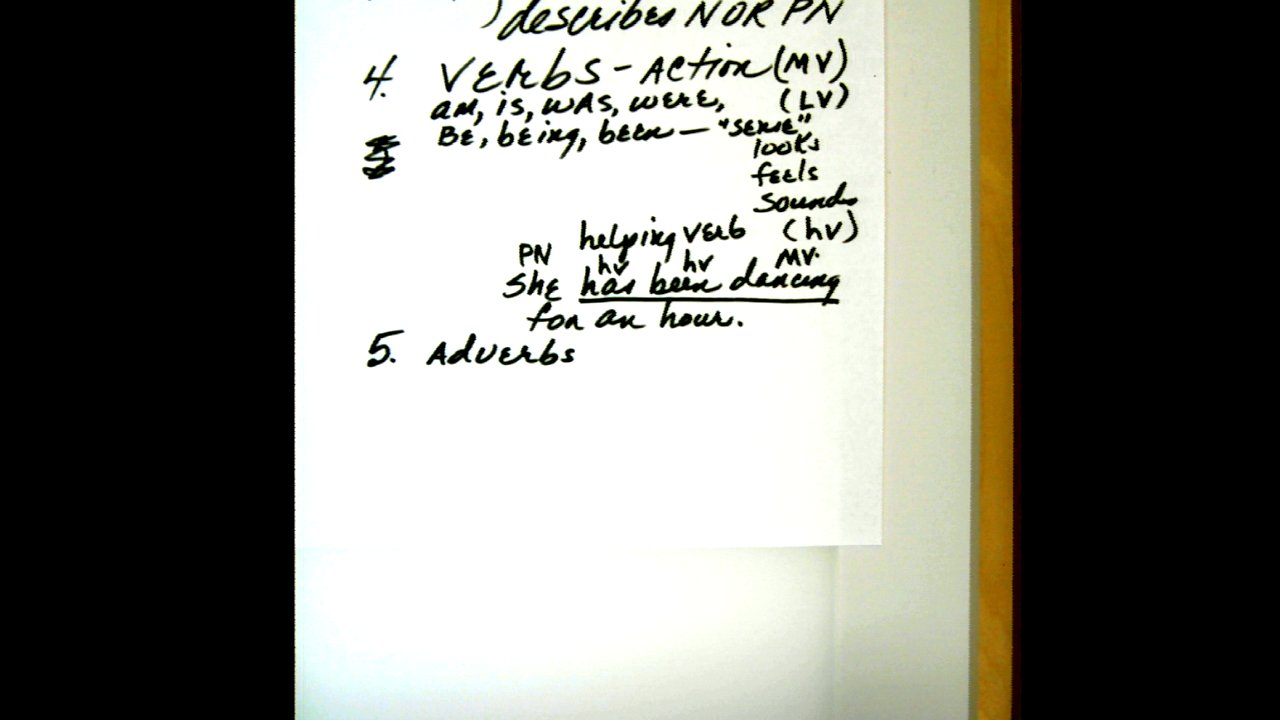 ) describes N OR PN
4. VERbS - Action (MV)
am, is, was, were, (LV)
BE, being, been — "sense"
looks
feels
sounds
helping verb (hv)
PN hv hv MV.
She has been dancing
for an hour.
5. Adverbs